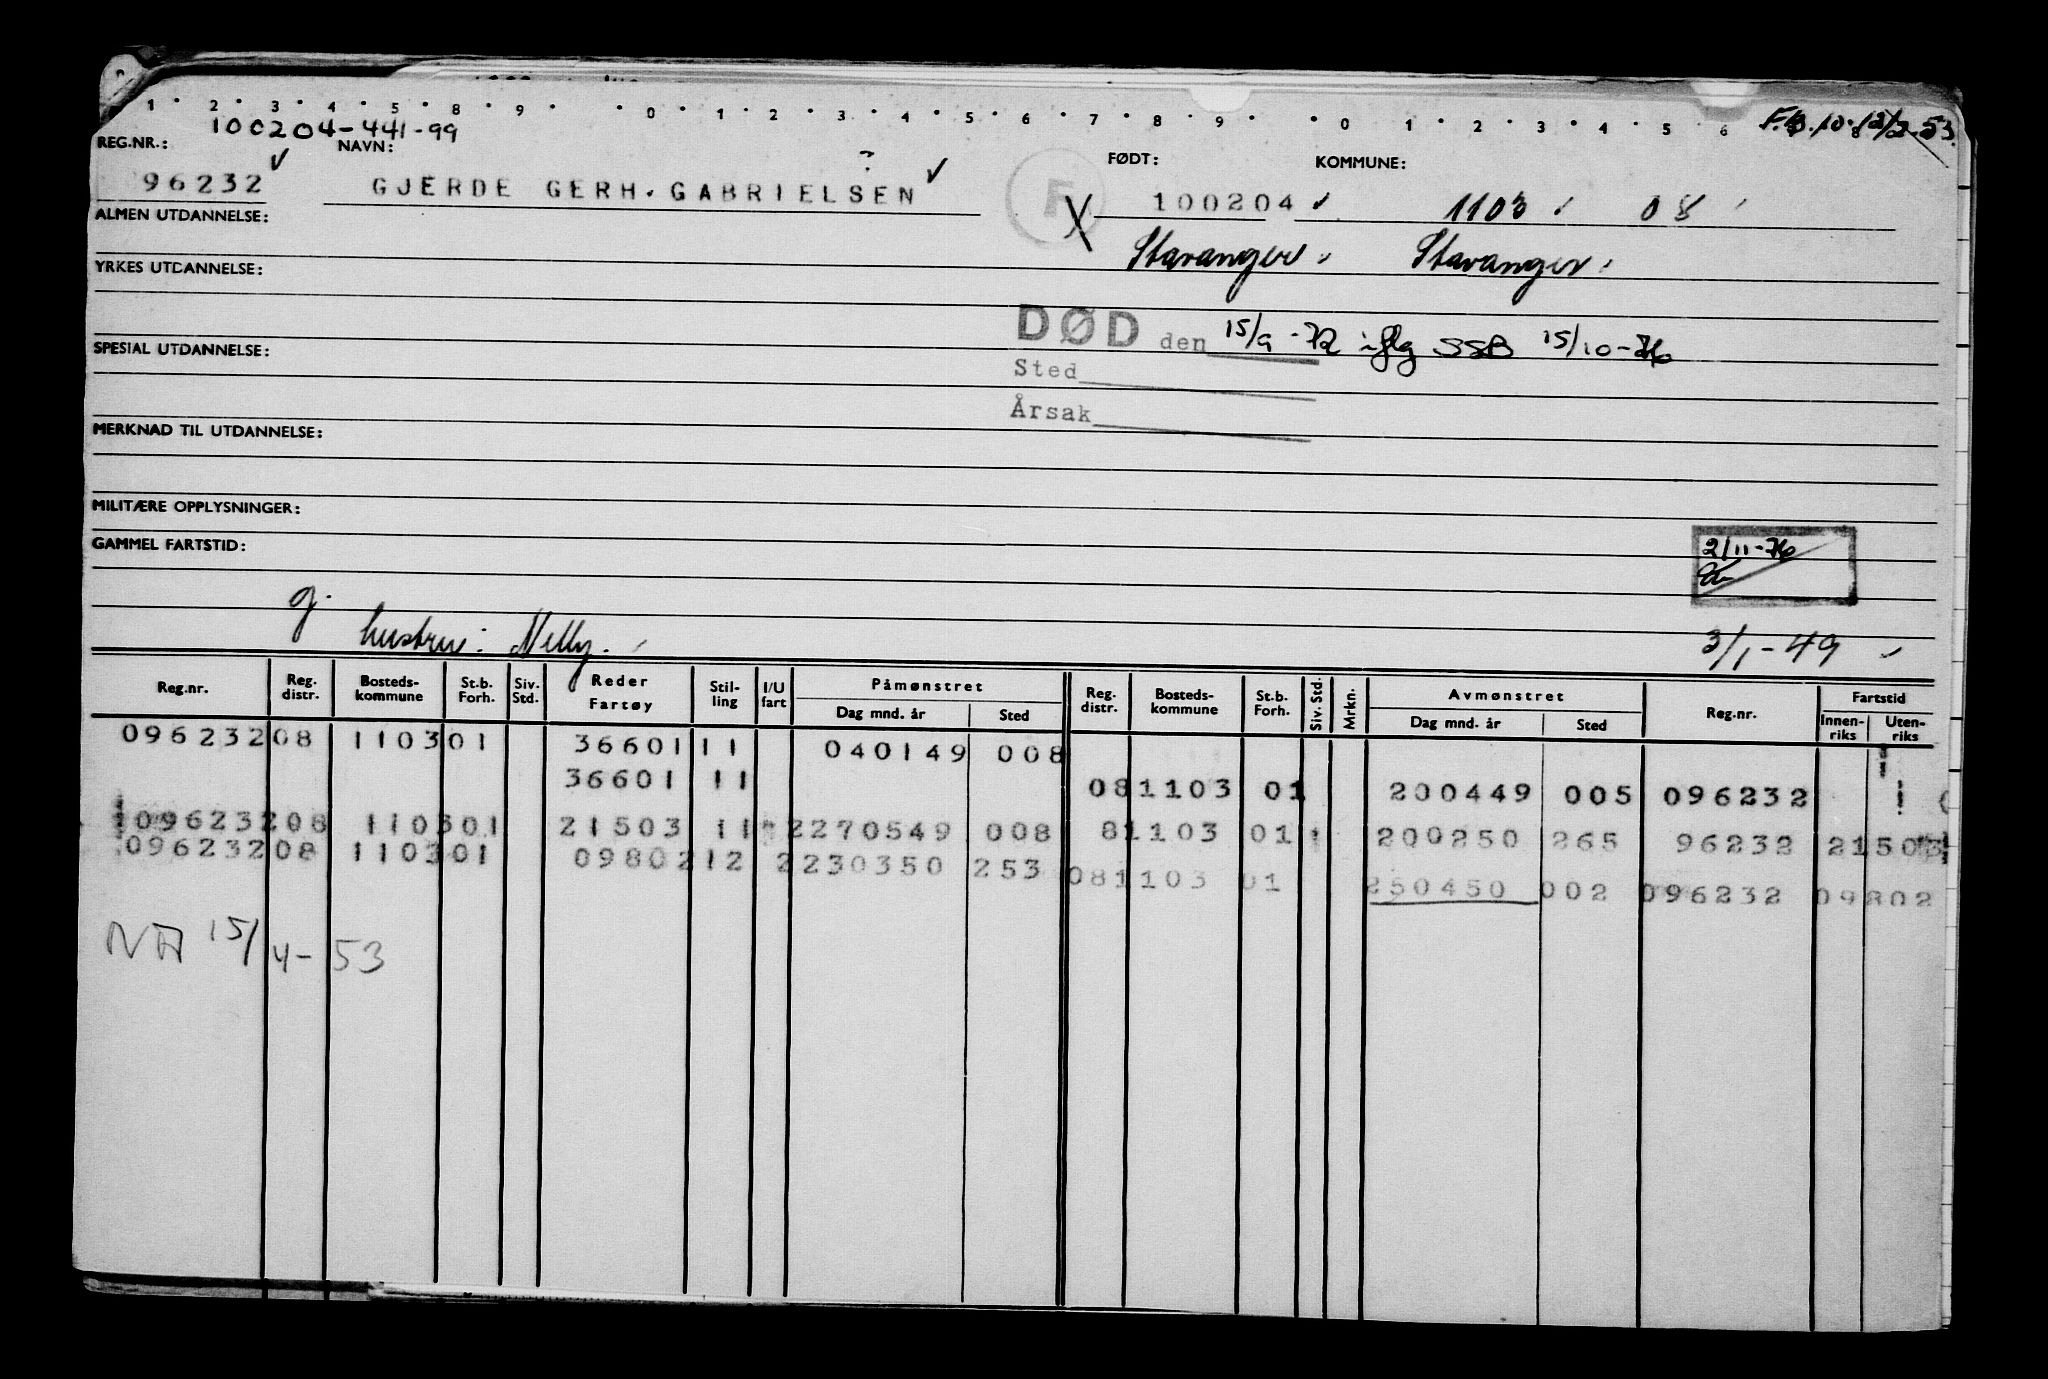 1 2 3 4 5 8 9 0 1 2 3 4 5 6 7 8 9 0 1 2 3 4 5 6 8
F.B.10.12/2.53.
100204-441-99
REG.NR.: NAVN: ? FØDT: KOMMUNE:
96232 GJERDE GERH. GABRIELSEN F X 100204 1103 08
ALMEN UTDANNELSE:
Stavanger Stavanger
YRKES UTDANNELSE:
DØD den 15/9-72 iflg SSB 15/10-76
SPESIAL UTDANNELSE:
Sted
Årsak
MERKNAD TIL UTDANNELSE:
MILITÆRE OPPLYSNINGER:
GAMMEL FARTSTID:
2/11-76
g.
hustru: Nelly.
3/1-49
Reg.nr. Reg. distr. Bosteds-kommune St.b. Forh. Siv. Std. Reder Fartøy Stil-ling I/U fart Påmønstret Dag mnd. år Sted Reg. distr. Bosteds-kommune St.b. Forh. Siv. Std. Mrkn. Avmønstret Dag mnd. år Sted Reg.nr. Fartstid Innen-riks Uten-riks
096232 08 1103 01 36601 11 040149 008
36601 11 08 1103 01 200449 005 096232
096232 08 1103 01 21503 11 2 270549 008 8 1103 01 200250 265 96232 21503
096232 08 1103 01 09802 12 2 230350 253 08 1103 01 250450 002 096232 09802
NA 15/4-53